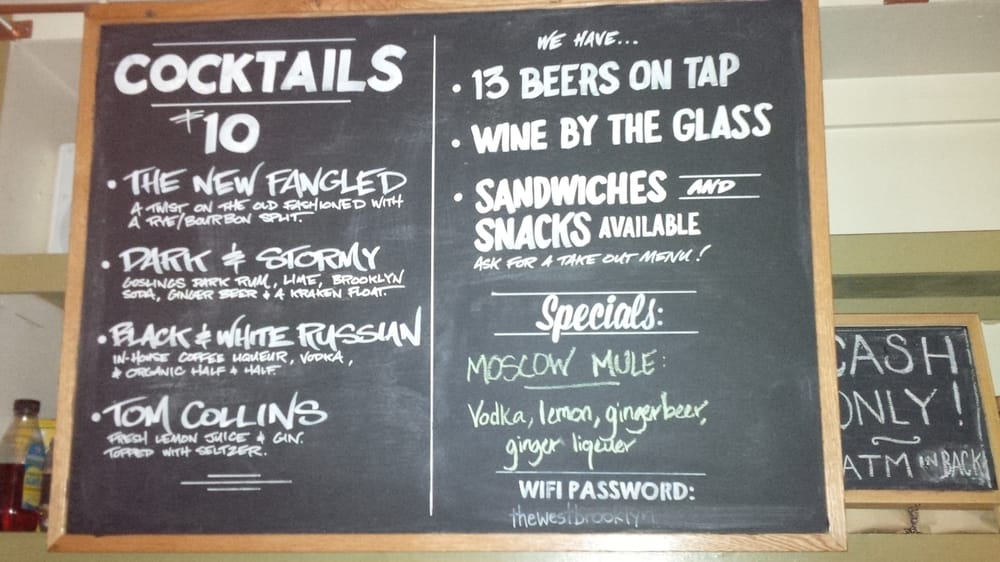 COCKTAILS
$10
• THE NEW FANGLED
A TWIST ON THE OLD FASHIONED WITH
A RYE/BOURBON SPLIT.
• DARK & STORMY
GOSLINGS DARK RUM, LIME, BROOKLYN
SODA, GINGER BEER & A KRAKEN FLOAT.
• BLACK & WHITE RUSSIAN
IN-HOUSE COFFEE LIQUEUR, VODKA,
& ORGANIC HALF & HALF.
• TOM COLLINS
FRESH LEMON JUICE & GIN.
TOPPED WITH SELTZER.
WE HAVE...
• 13 BEERS ON TAP
• WINE BY THE GLASS
• SANDWICHES AND
SNACKS AVAILABLE
ASK FOR A TAKE OUT MENU!
Specials:
MOSCOW MULE:
Vodka, lemon, gingerbeer,
ginger liqeuer
WIFI PASSWORD:
thewestbrooklyn
CASH
ONLY!
ATM IN BACK